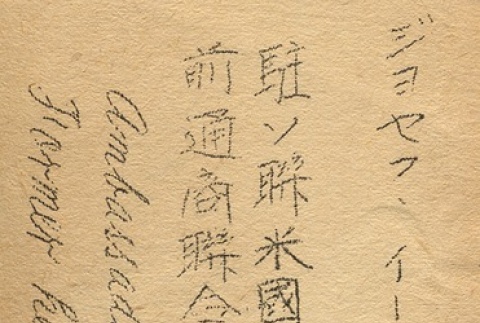 ジヨセフ、イー
駐ソ聯米國
前通商聯合
Ambassad
Former